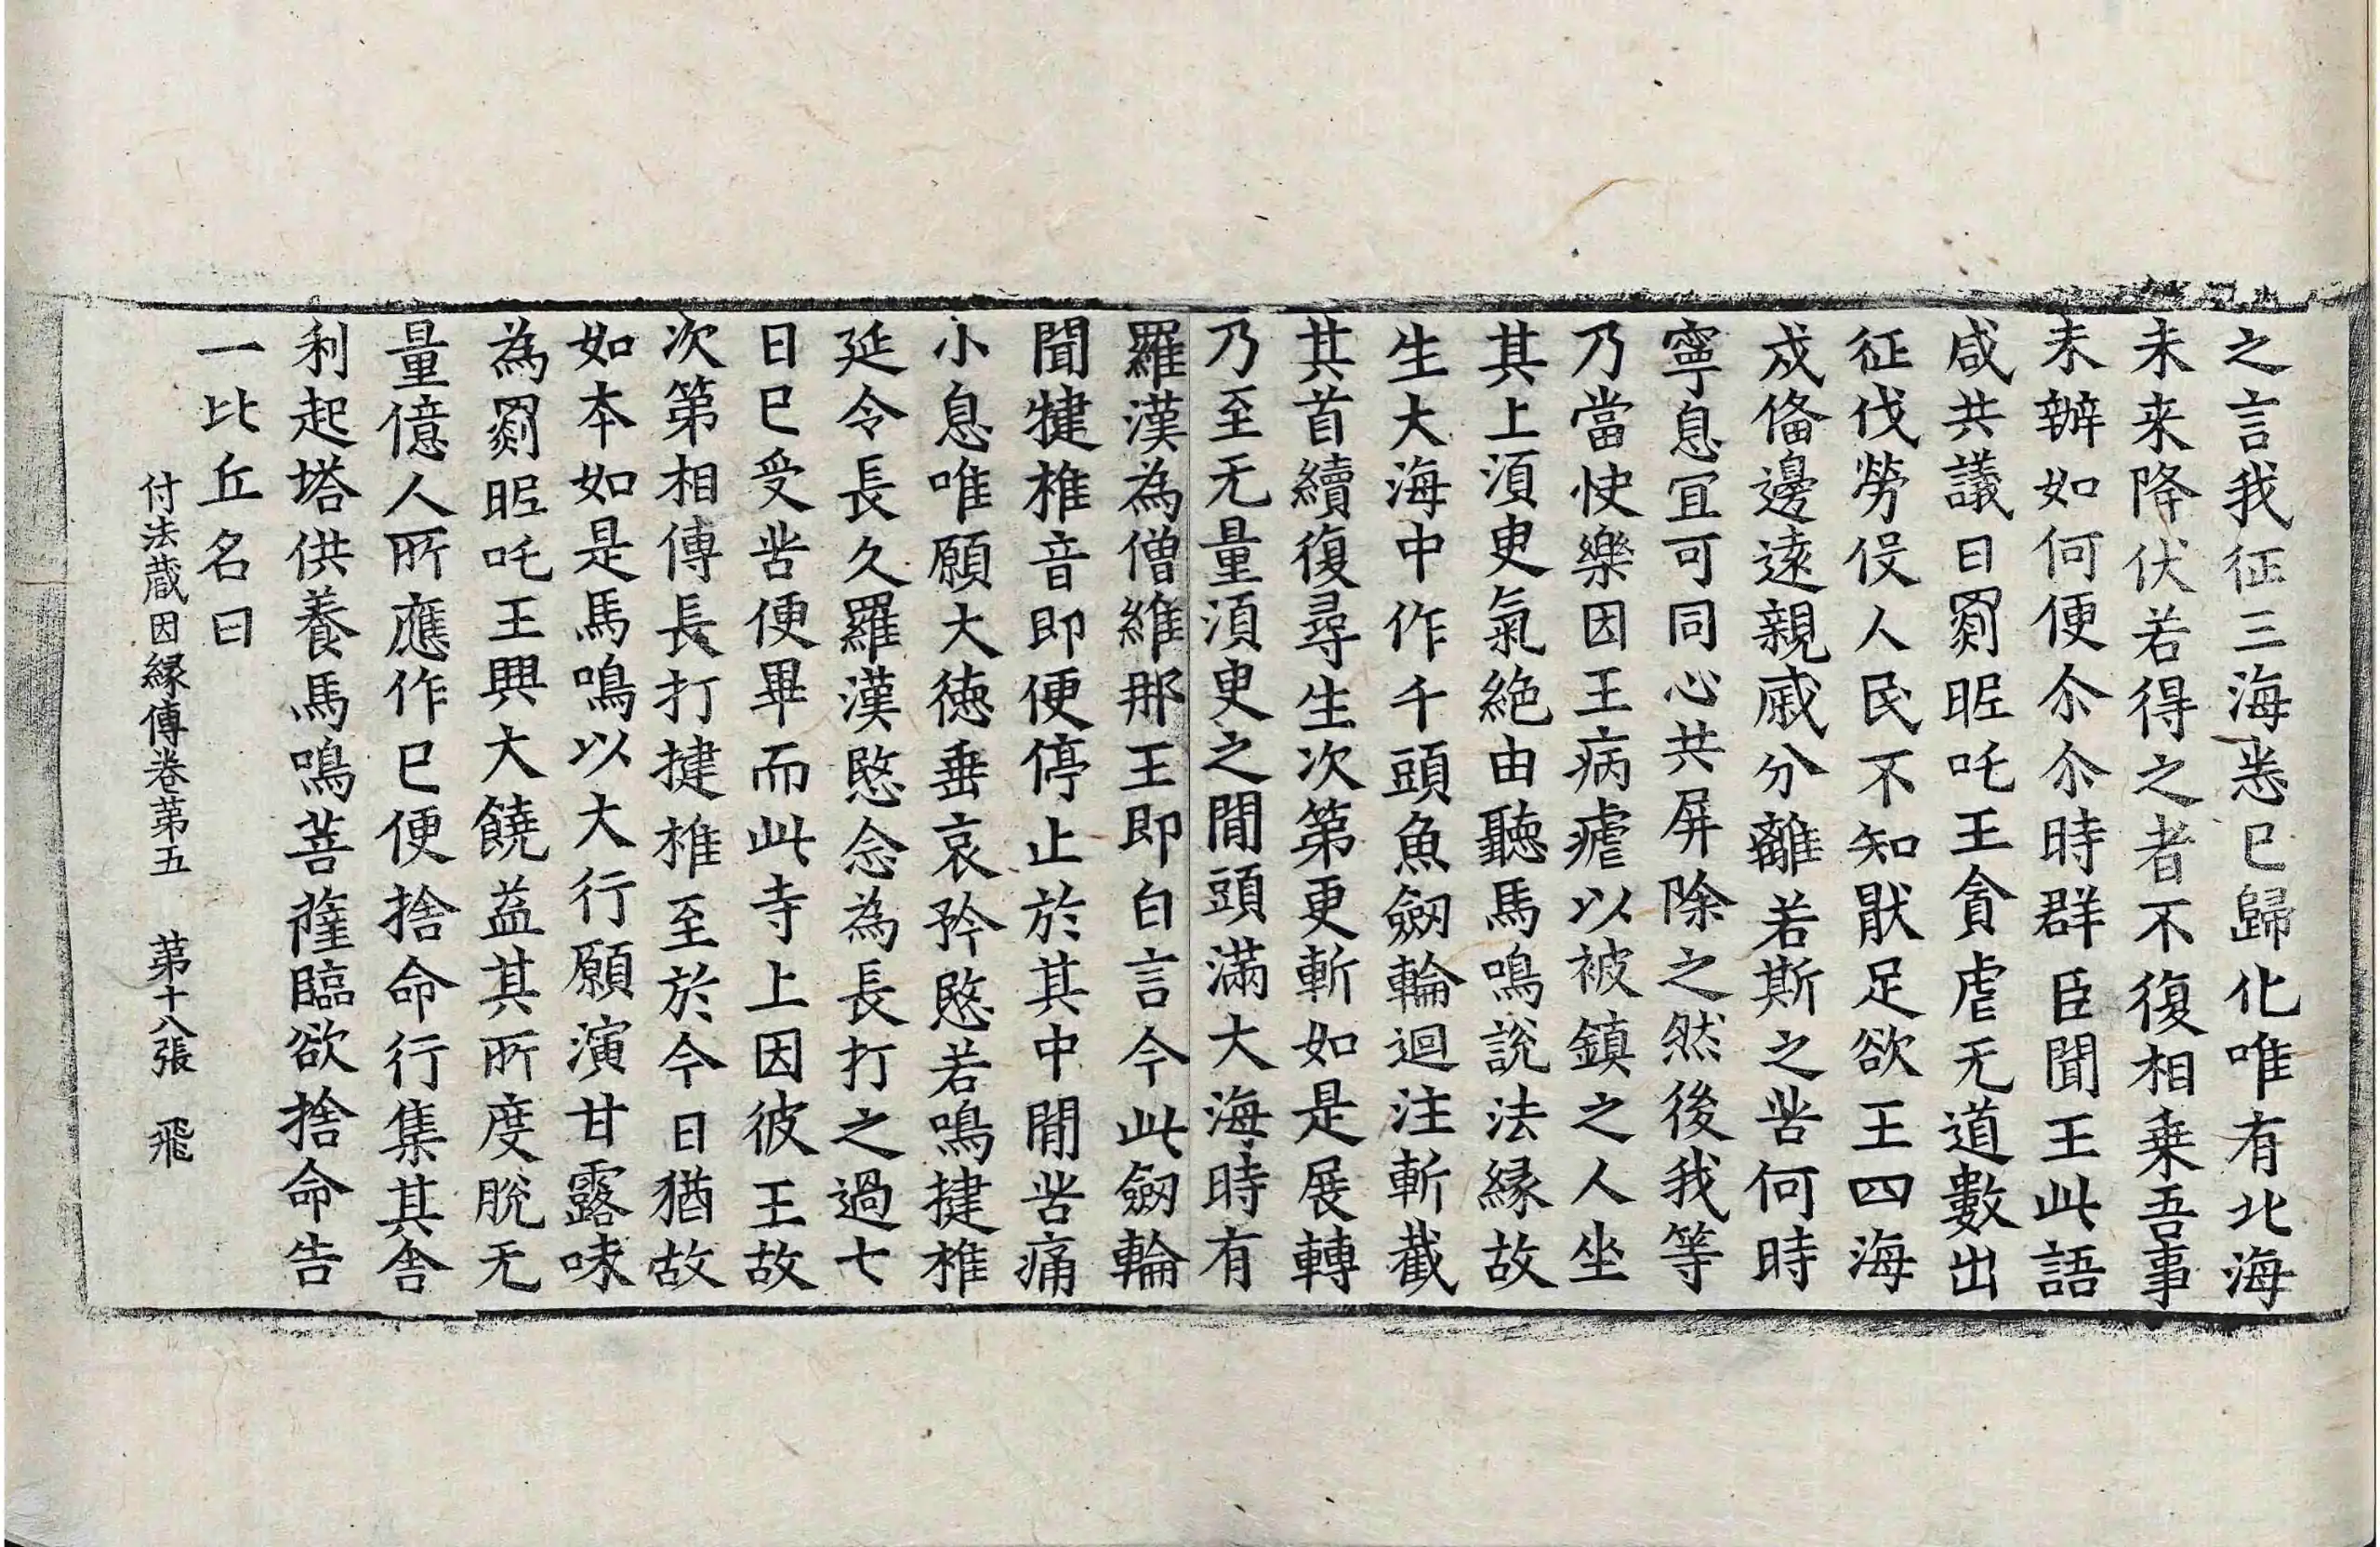 之言我征三海悉已歸化唯有北海
未来降伏若得之者不復相乗吾事
未辦如何便尒尒時群臣聞王此語
咸共議曰罽昵吒王貪虐无道數出
征伐勞伇人民不知猒足欲王四海
戍俻邊遠親戚分離若斯之苦何時
寧息冝可同心共屏除之然後我等
乃當快樂因王病瘧以被鎮之人坐
其上湏㬰氣絶由聽馬鳴說法縁故
生大海中作千頭魚劒輪迴注斬截
其首續復尋生次第更斬如是展轉
乃至无量湏㬰之間頭滿大海時有
羅漢為僧維那王即白言今此劒輪
聞犍椎音即便停止於其中間苦痛
小息唯願大徳垂哀矜愍若鳴揵椎
延令長久羅漢愍念為長打之過七
日已受苦便畢而此寺上因彼王故
次第相傳長打揵椎至於今日猶故
如本如是馬鳴以大行願演甘露味
為罽昵吒王興大饒益其所度脫无
量億人所應作已便捨命行集其舍
利起塔供養馬鳴菩薩臨欲捨命告
一比丘名曰
付法蔵因縁傳卷第五 第十八張 飛